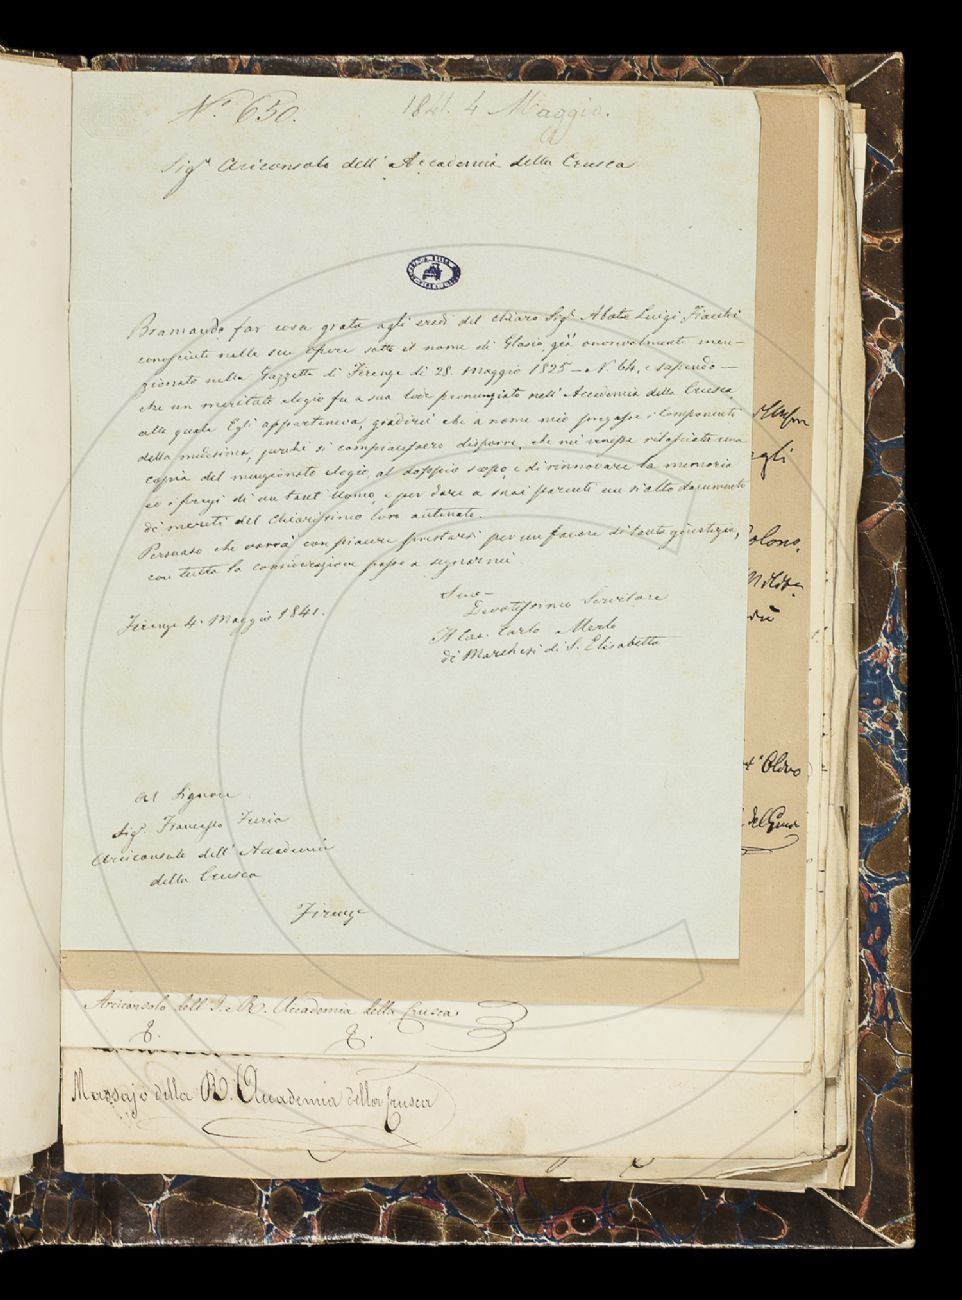 N.° 650.
1841. 4 Maggio.
Sig.r Arciconsolo dell' Accademia della Crusca
Bramando far cosa grata agli eredi del chiaro Sig.r Abate Luigi Fiacchi
conosciuto nelle sue opere sotto il nome di Clasio, già onorevolmente men-
zionato nella Gazzetta di Firenze di 28. Maggio 1825 - N. 64, e sapendo -
che un meritato elogio fu a sua lode pronunziato nell' Accademia della Crusca,
alla quale Egli apparteneva, gradirei che a nome mio pregasse i Componenti
della medesima, perchè si compiacessero disporre, che mi venisse rilasciata una
copia del menzionato elogio, al doppio scopo, e di rinnovare la memoria
e i pregi di un tant' Uomo, e per dare a suoi parenti un sì alto documento
de' meriti del chiarissimo loro antenato.
Persuaso che vorrà con piacere prestarsi per un favore di tanta giustizia,
con tutta la considerazione passo a segnarmi.
Firenze 4. Maggio 1841.
Suo -
Devotissimo Servitore
Il Cav. Carlo Merlo
de' Marchesi di S. Elisabetta
Al Signore
Sig.r Francesco Furia
Arciconsolo dell' Accademia
della Crusca
Firenze
agli
Arciconsolo dell' I. e R. Accademia della Crusca.
Massajo della R. Accademia della Crusca